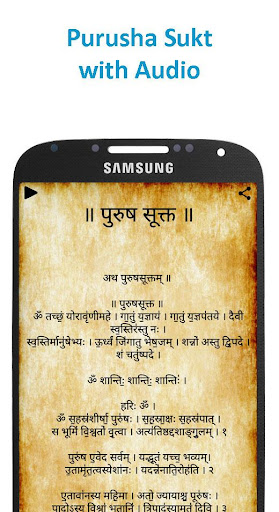 Purusha Sukt
with Audio
SAMSUNG
॥ पुरुष सूक्त ॥
अथ पुरुषसूक्तम् ॥
॥ पुरुषसूक्त ॥
ॐ तच्छं॒ योरावृ॑णीमहे । गा॒तुं य॒ज्ञाय॑ । गा॒तुं य॒ज्ञप॑तये । दैवी᳚
स्व॒स्तिर॑स्तु नः ।
स्व॒स्तिर्मानु॑षेभ्यः । ऊ॒र्ध्वं जि॑गातु भेष॒जम् । शन्नो॑ अस्तु द्वि॒पदे᳚ ।
शं चतु॑ष्पदे ।
ॐ शान्तिः॒ शान्तिः॒ शान्तिः॑ ।
हरिः ॐ ।
ॐ स॒हस्र॑शीर्षा॒ पुरु॑षः । स॒ह॒स्रा॒क्षः स॒हस्र॑पात् ।
स भूमिं॑ वि॒श्वतो॑ वृ॒त्वा । अत्य॑तिष्ठद्दशाङ्गु॒लम् ।
पुरु॑ष ए॒वेदं सर्वम्᳚ । यद्भू॒तं यच्च॒ भव्यम्᳚ ।
उ॒तामृ॑त॒त्वस्येशा॑नः । यदन्ने॑नाति॒रोह॑ति । २
ए॒तावा॑नस्य महि॒मा । अतो॒ ज्यायाꣳ॑श्च॒ पूरु॑षः ।
पादो᳚ऽस्य॒ विश्वा॑ भू॒तानि॑ । त्रि॒पाद॑स्या॒मृतं॑ दि॒वि । ३